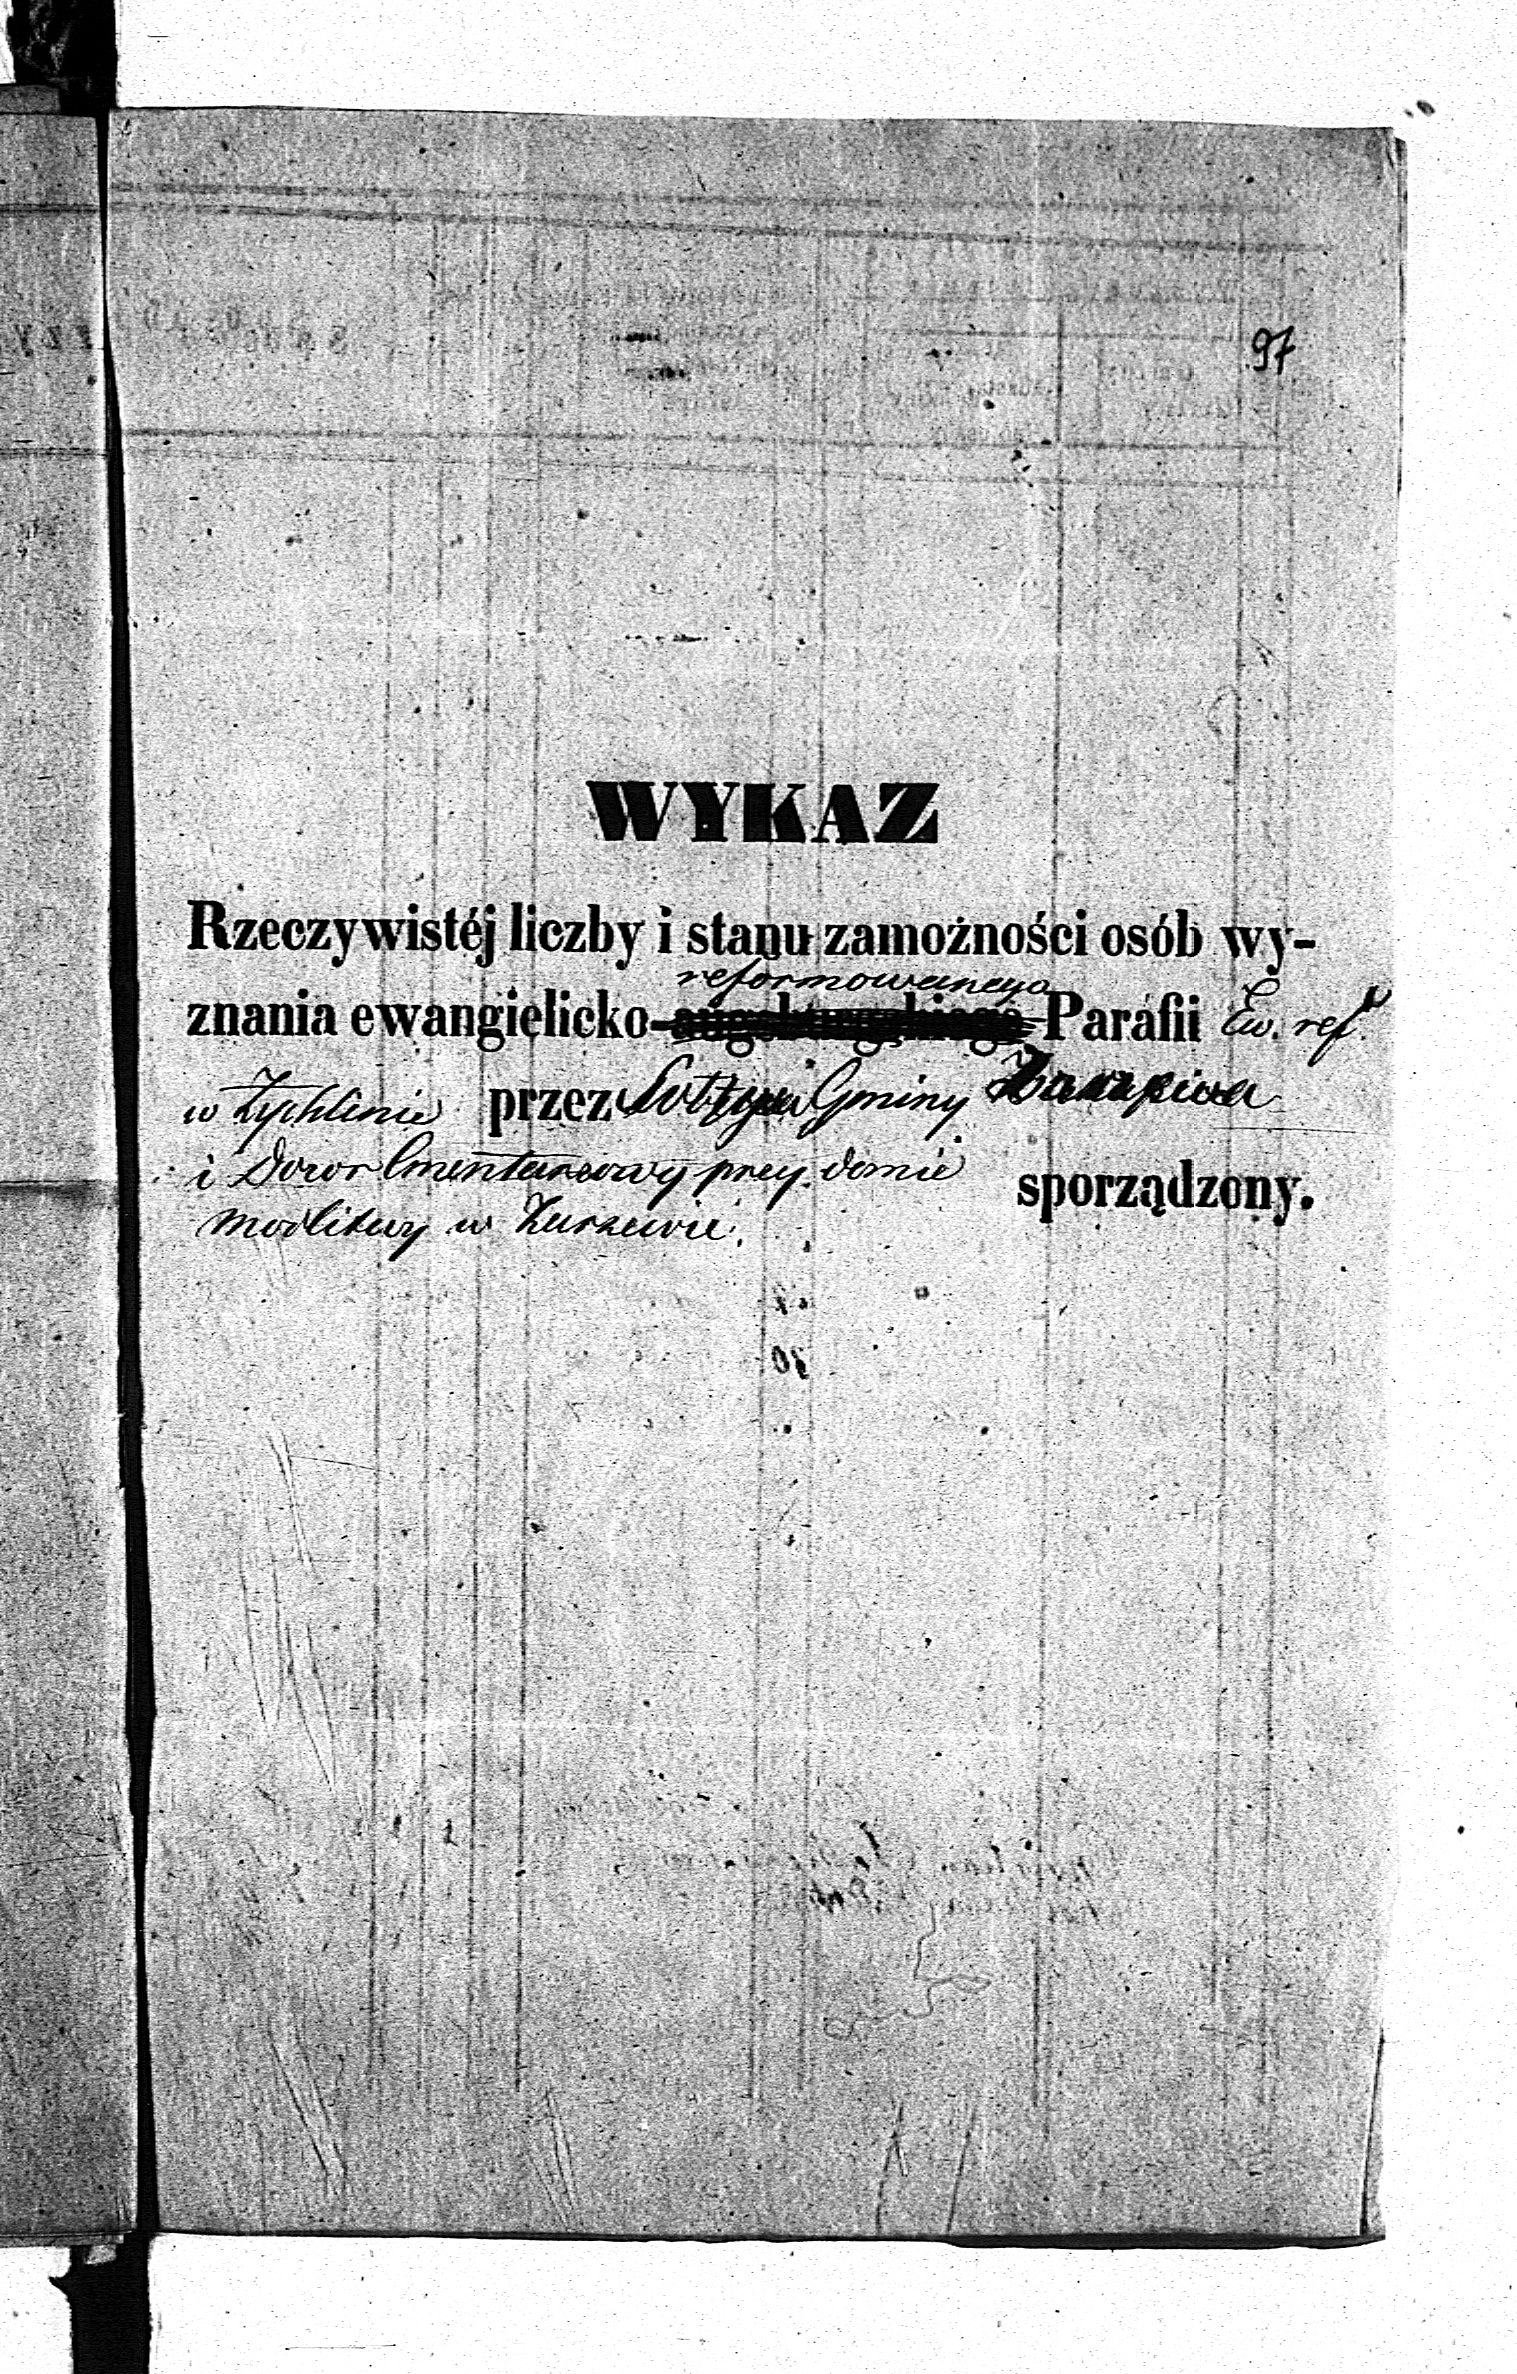 97
WYKAZ
Rzeczywistéj liczby i stanu zamożności osób wy-
reformowanego
znania ewangielicko-augsburgskiego Parafii Ew. ref.
w Żychlinie przez Sołtysa Gminy
i Dozor Cmentarzowy przy domie sporządzony.
modlitwy w Żurzewie.